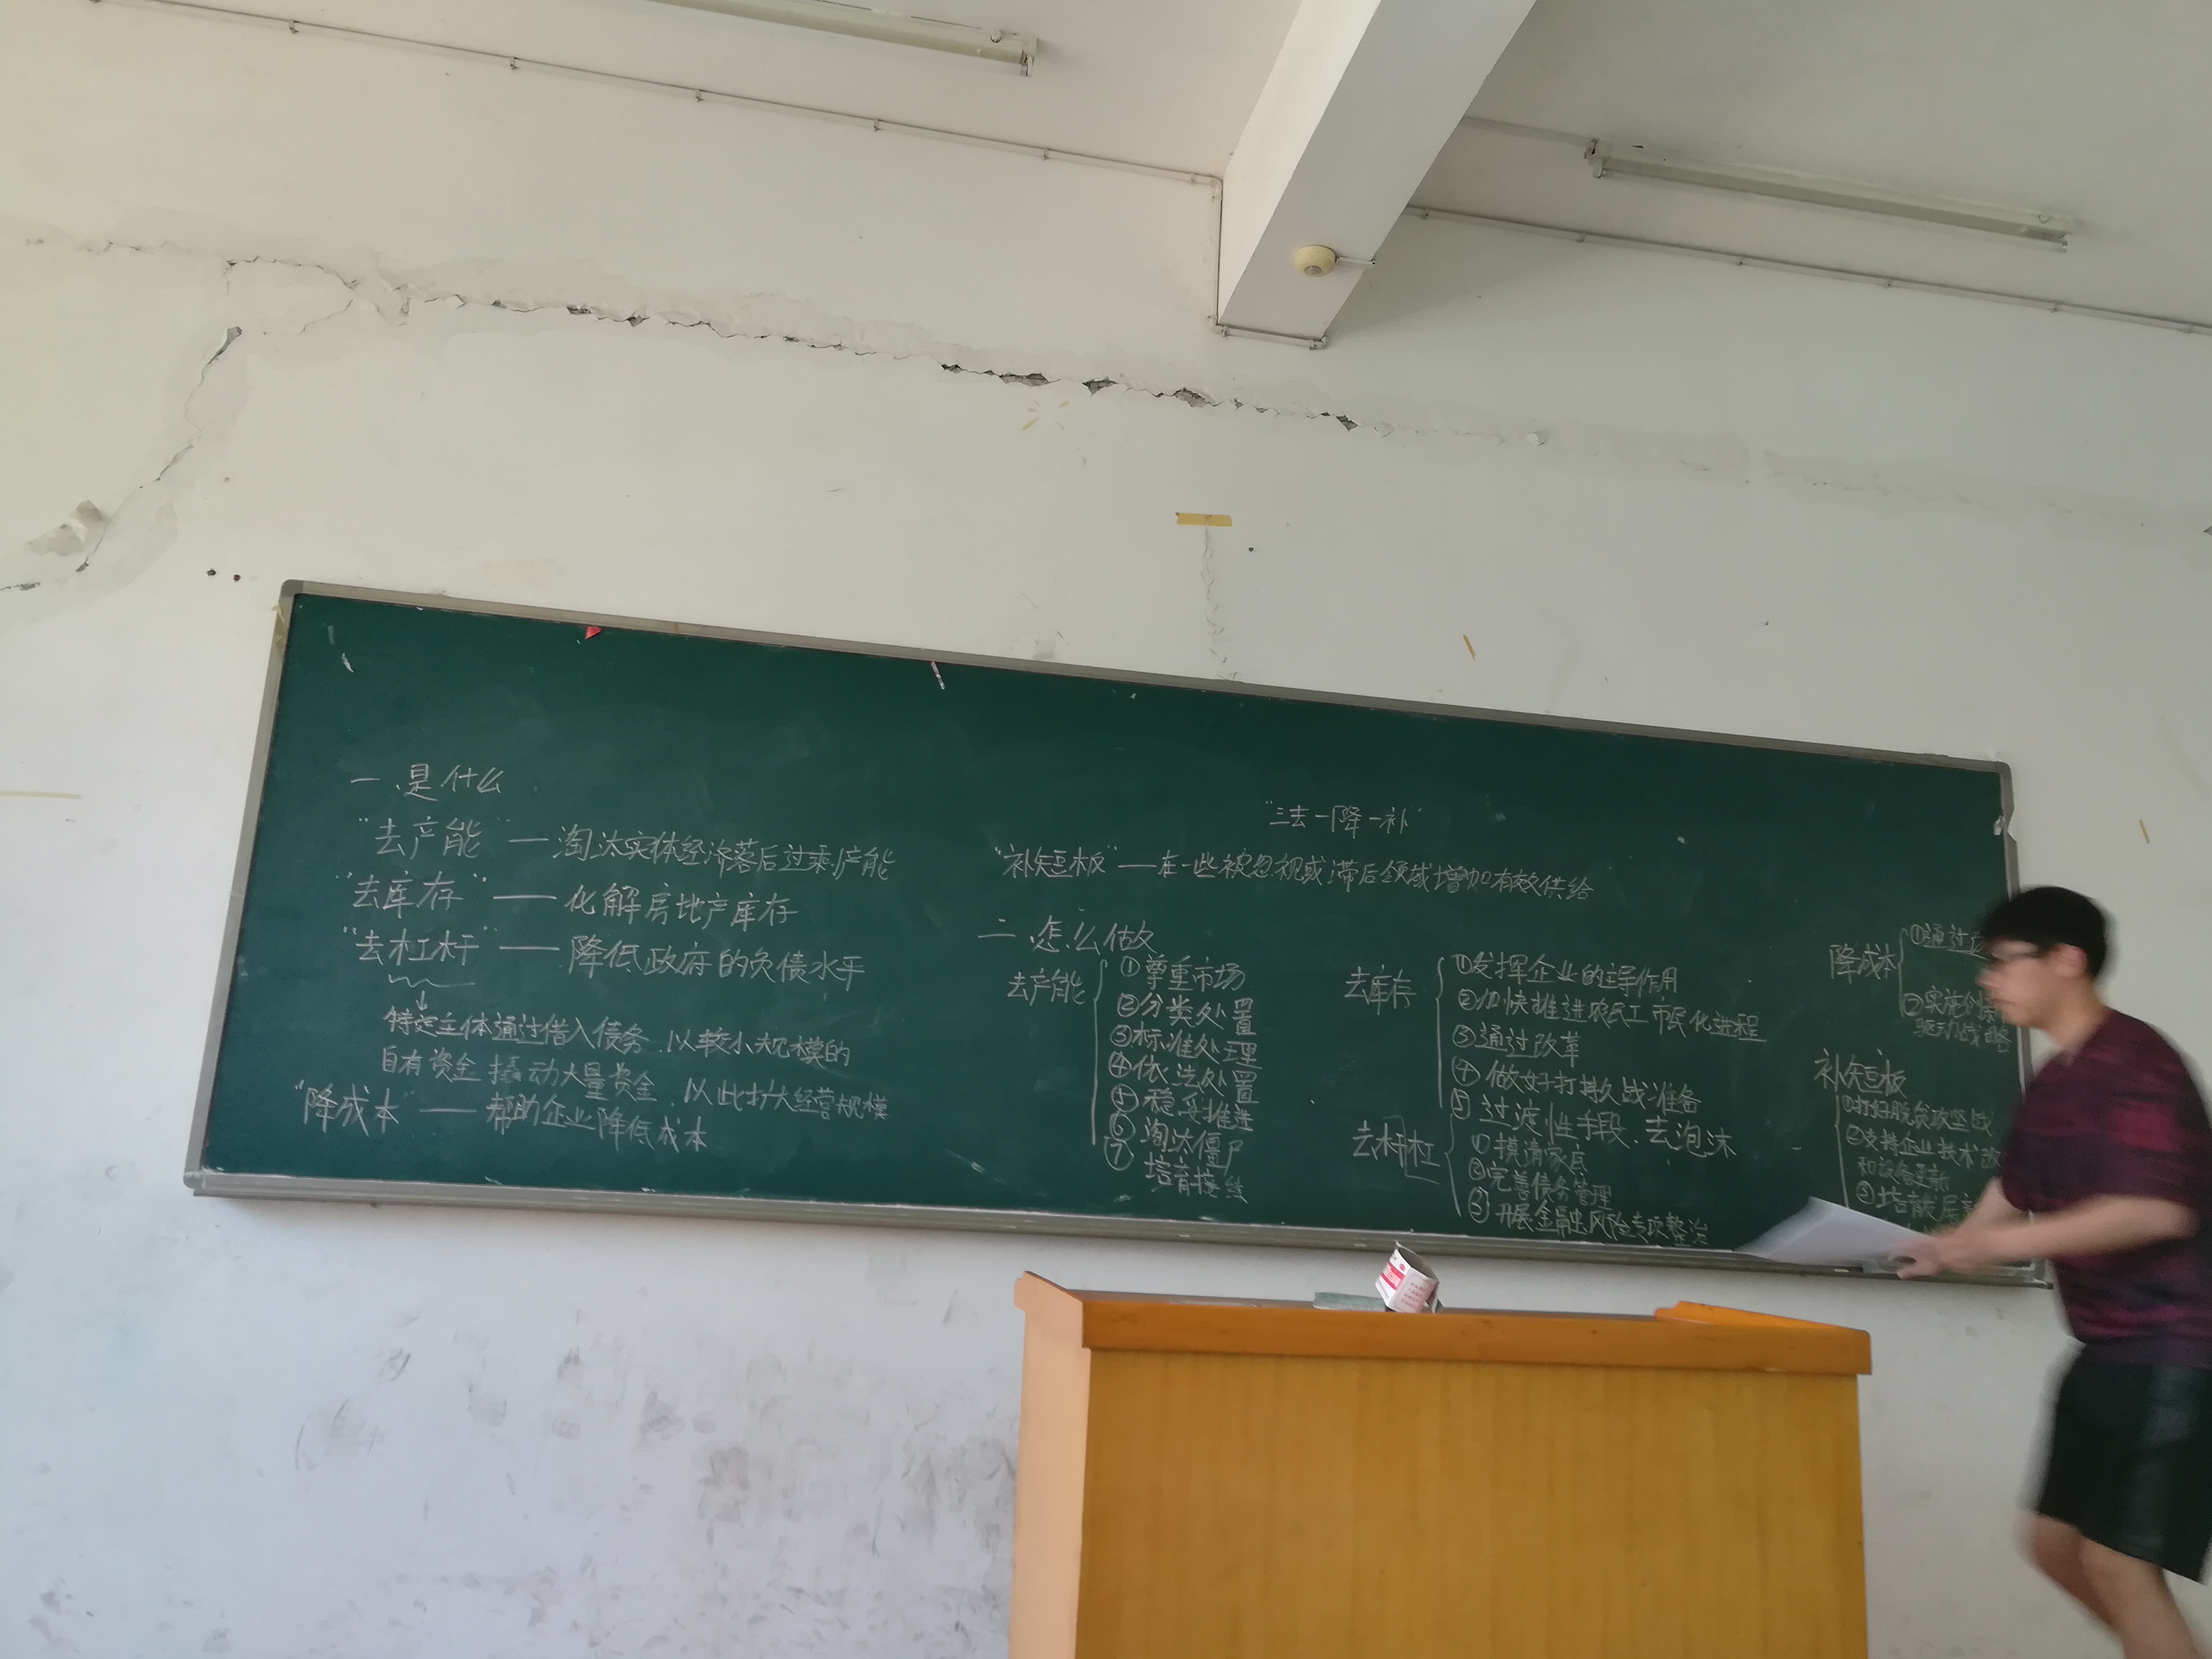 "三去一降一补"
一、是什么
"去产能"—淘汰实体经济落后过剩产能
"去库存"——化解房地产库存
"去杠杆"——降低政府的负债水平
特定主体通过借入债务、以较小规模的
自有资金撬动大量资金、以此扩大经营规模
"降成本"——帮助企业降低成本
"补短板"——在一些被忽视或滞后领域增加有效供给
二、怎么做
去产能
①尊重市场
②分类处置
③标准处理
④依法处置
⑤稳妥推进
⑥淘汰僵尸
⑦培育接续
去库存
①发挥企业的主导作用
②加快推进农民工市民化进程
③通过改革
④做好打持久战准备
⑤过滤性手段、去泡沫
去杆杠
①摸清家底
②完善债务管理
③开展金融风险专项整治
降成本
①通过
②实施创
驱动战略
补短板
①打好脱贫攻坚战
②支持企业技术改
和设备更新
③培育发展